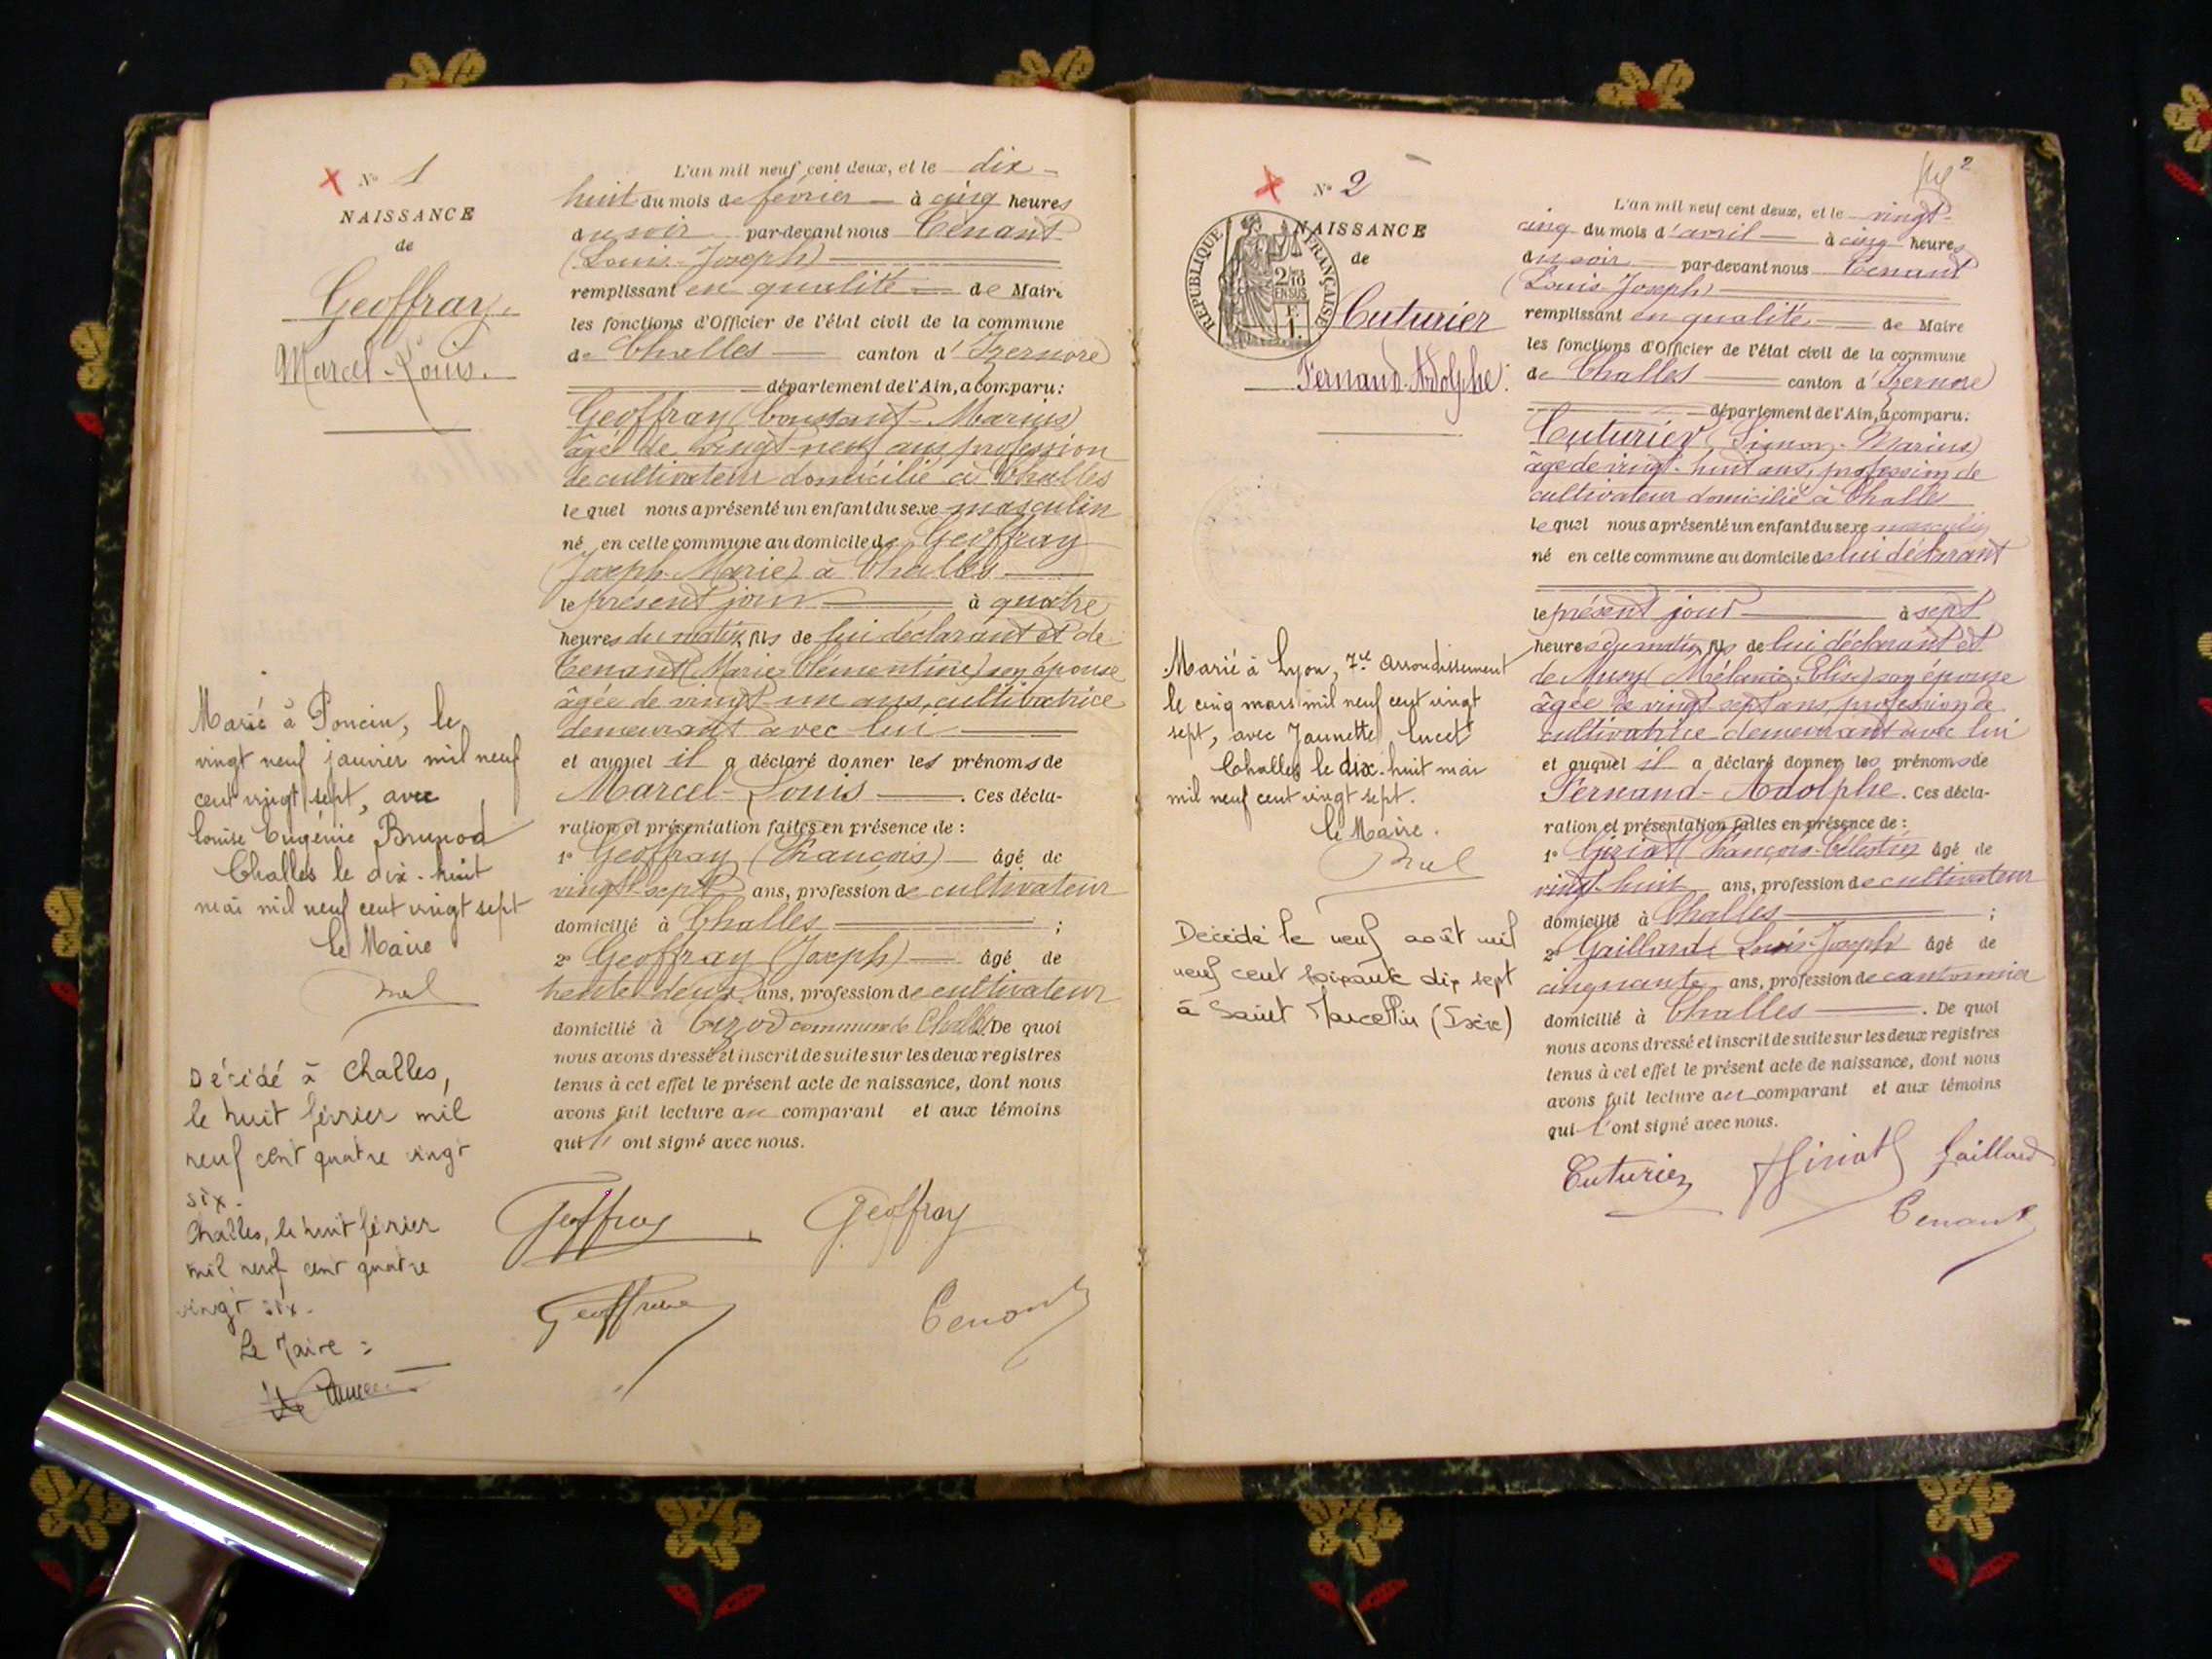 N° 1
NAISSANCE
de
Geoffray
Marcel-Louis.
Marié à Poncin, le
vingt neuf janvier mil neuf
cent vingt sept, avec
Louise Eugénie Brunod
Challes le dix-huit
mai mil neuf cent vingt sept
le Maire
Décédé à Challes,
le huit février mil
neuf cent quatre vingt
six.
Challes, le huit février
mil neuf cent quatre
vingt six.
Le Maire :
L'an mil neuf cent deux, et le dix-
huit du mois de février à cinq heures
du soir par-devant nous Tenant
(Louis-Joseph)
remplissant en qualité de Maire
les fonctions d'Officier de l'état civil de la commune
de Challes canton d'Izernore
département de l'Ain, a comparu:
Geoffray (Constant-Marius)
âgé de vingt-neuf ans profession
de cultivateur domicilié à Challes
lequel nous a présenté un enfant du sexe masculin
né en cette commune au domicile de Geoffray
(Joseph-Marie) à Challes
le présent jour à quatre
heures du matin, fils de lui déclarant et de
Tenant (Marie Clémentine) son épouse
âgée de vingt-un ans, cultivatrice
demeurant avec lui
et auquel il a déclaré donner les prénoms de
Marcel-Louis. Ces décla-
ration et présentation faites en présence de :
1° Geoffray (François) âgé de
vingt-sept ans, profession de cultivateur
domicilié à Challes ;
2° Geoffray (Joseph) âgé de
trente-deux ans, profession de cultivateur
domicilié à commune de Challes. De quoi
nous avons dressé et inscrit de suite sur les deux registres
tenus à cet effet le présent acte de naissance, dont nous
avons fait lecture au comparant et aux témoins
qui l'ont signé avec nous.
Geoffray Geoffray
Geoffray Tenant
2
N° 2
NAISSANCE
de
REPUBLIQUE FRANÇAISE
2/10
EN SUS
Cuturier
Fernand-Adolphe.
Marié à Lyon, 7e arrondissement
le cinq mars mil neuf cent vingt
sept, avec Jeannette Lucet
Challes le dix-huit mai
mil neuf cent vingt sept.
le Maire.
Décédé le neuf août mil
neuf cent soixante dix sept
à Saint Marcellin (Isère)
L'an mil neuf cent deux, et le vingt-
cinq du mois d'avril à cinq heures
du soir par-devant nous Tenant
(Louis-Joseph)
remplissant en qualité de Maire
les fonctions d'Officier de l'état civil de la commune
de Challes canton d'Izernore
département de l'Ain, a comparu:
Cuturier (Simon-Marius)
âgé de vingt-huit ans, profession de
cultivateur domicilié à Challes
lequel nous a présenté un enfant du sexe masculin
né en cette commune au domicile de lui déclarant
le présent jour à sept
heures du matin, fils de lui déclarant et
de Musy (Mélanie Elise) son épouse
âgée de vingt-sept ans, profession de
cultivatrice demeurant avec lui
et auquel il a déclaré donner les prénoms de
Fernand-Adolphe. Ces décla-
ration et présentation faites en présence de :
1° François-Célestin âgé de
vingt-huit ans, profession de cultivateur
domicilié à Challes ;
2° Gaillard Louis-Joseph âgé de
cinquante ans, profession de cantonnier
domicilié à Challes. De quoi
nous avons dressé et inscrit de suite sur les deux registres
tenus à cet effet le présent acte de naissance, dont nous
avons fait lecture au comparant et aux témoins
qui l'ont signé avec nous.
Cuturier Gaillard
Tenant